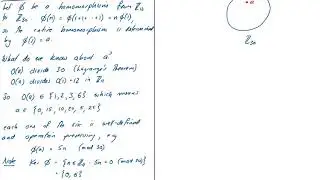 Let ϕ be a homomorphism from Z₁₂
to Z₃₀ ϕ(n) = ϕ(1+1+⋯+1) = nϕ(1)
so the entire homomorphism is determined
by ϕ(1) = a.
What do we know about a?
O(a) divides 30 (Lagrange's Theorem)
O(a) divides O(1) = 12 in Z₁₂
So O(a) ∈ {1, 2, 3, 6} which means
a ∈ {0, 15, 10, 20, 5, 25}
each one of the six is well-defined
and operation preserving, e.g.
ϕ(n) = 5n (mod 30)
Note Ker ϕ = {n ∈ Z₁₂ : 5n = 0 (mod 30)}
= {0, 6}
• a
Z₃₀